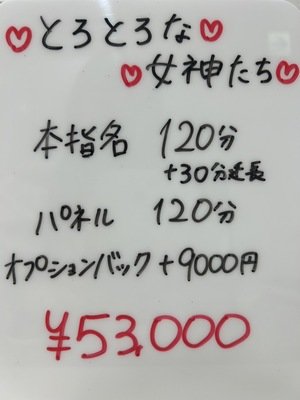 ♡とろとろな♡
♡女神たち♡
本指名 120分
+30分延長
パネル 120分
オプションバック+9000円
¥53,000